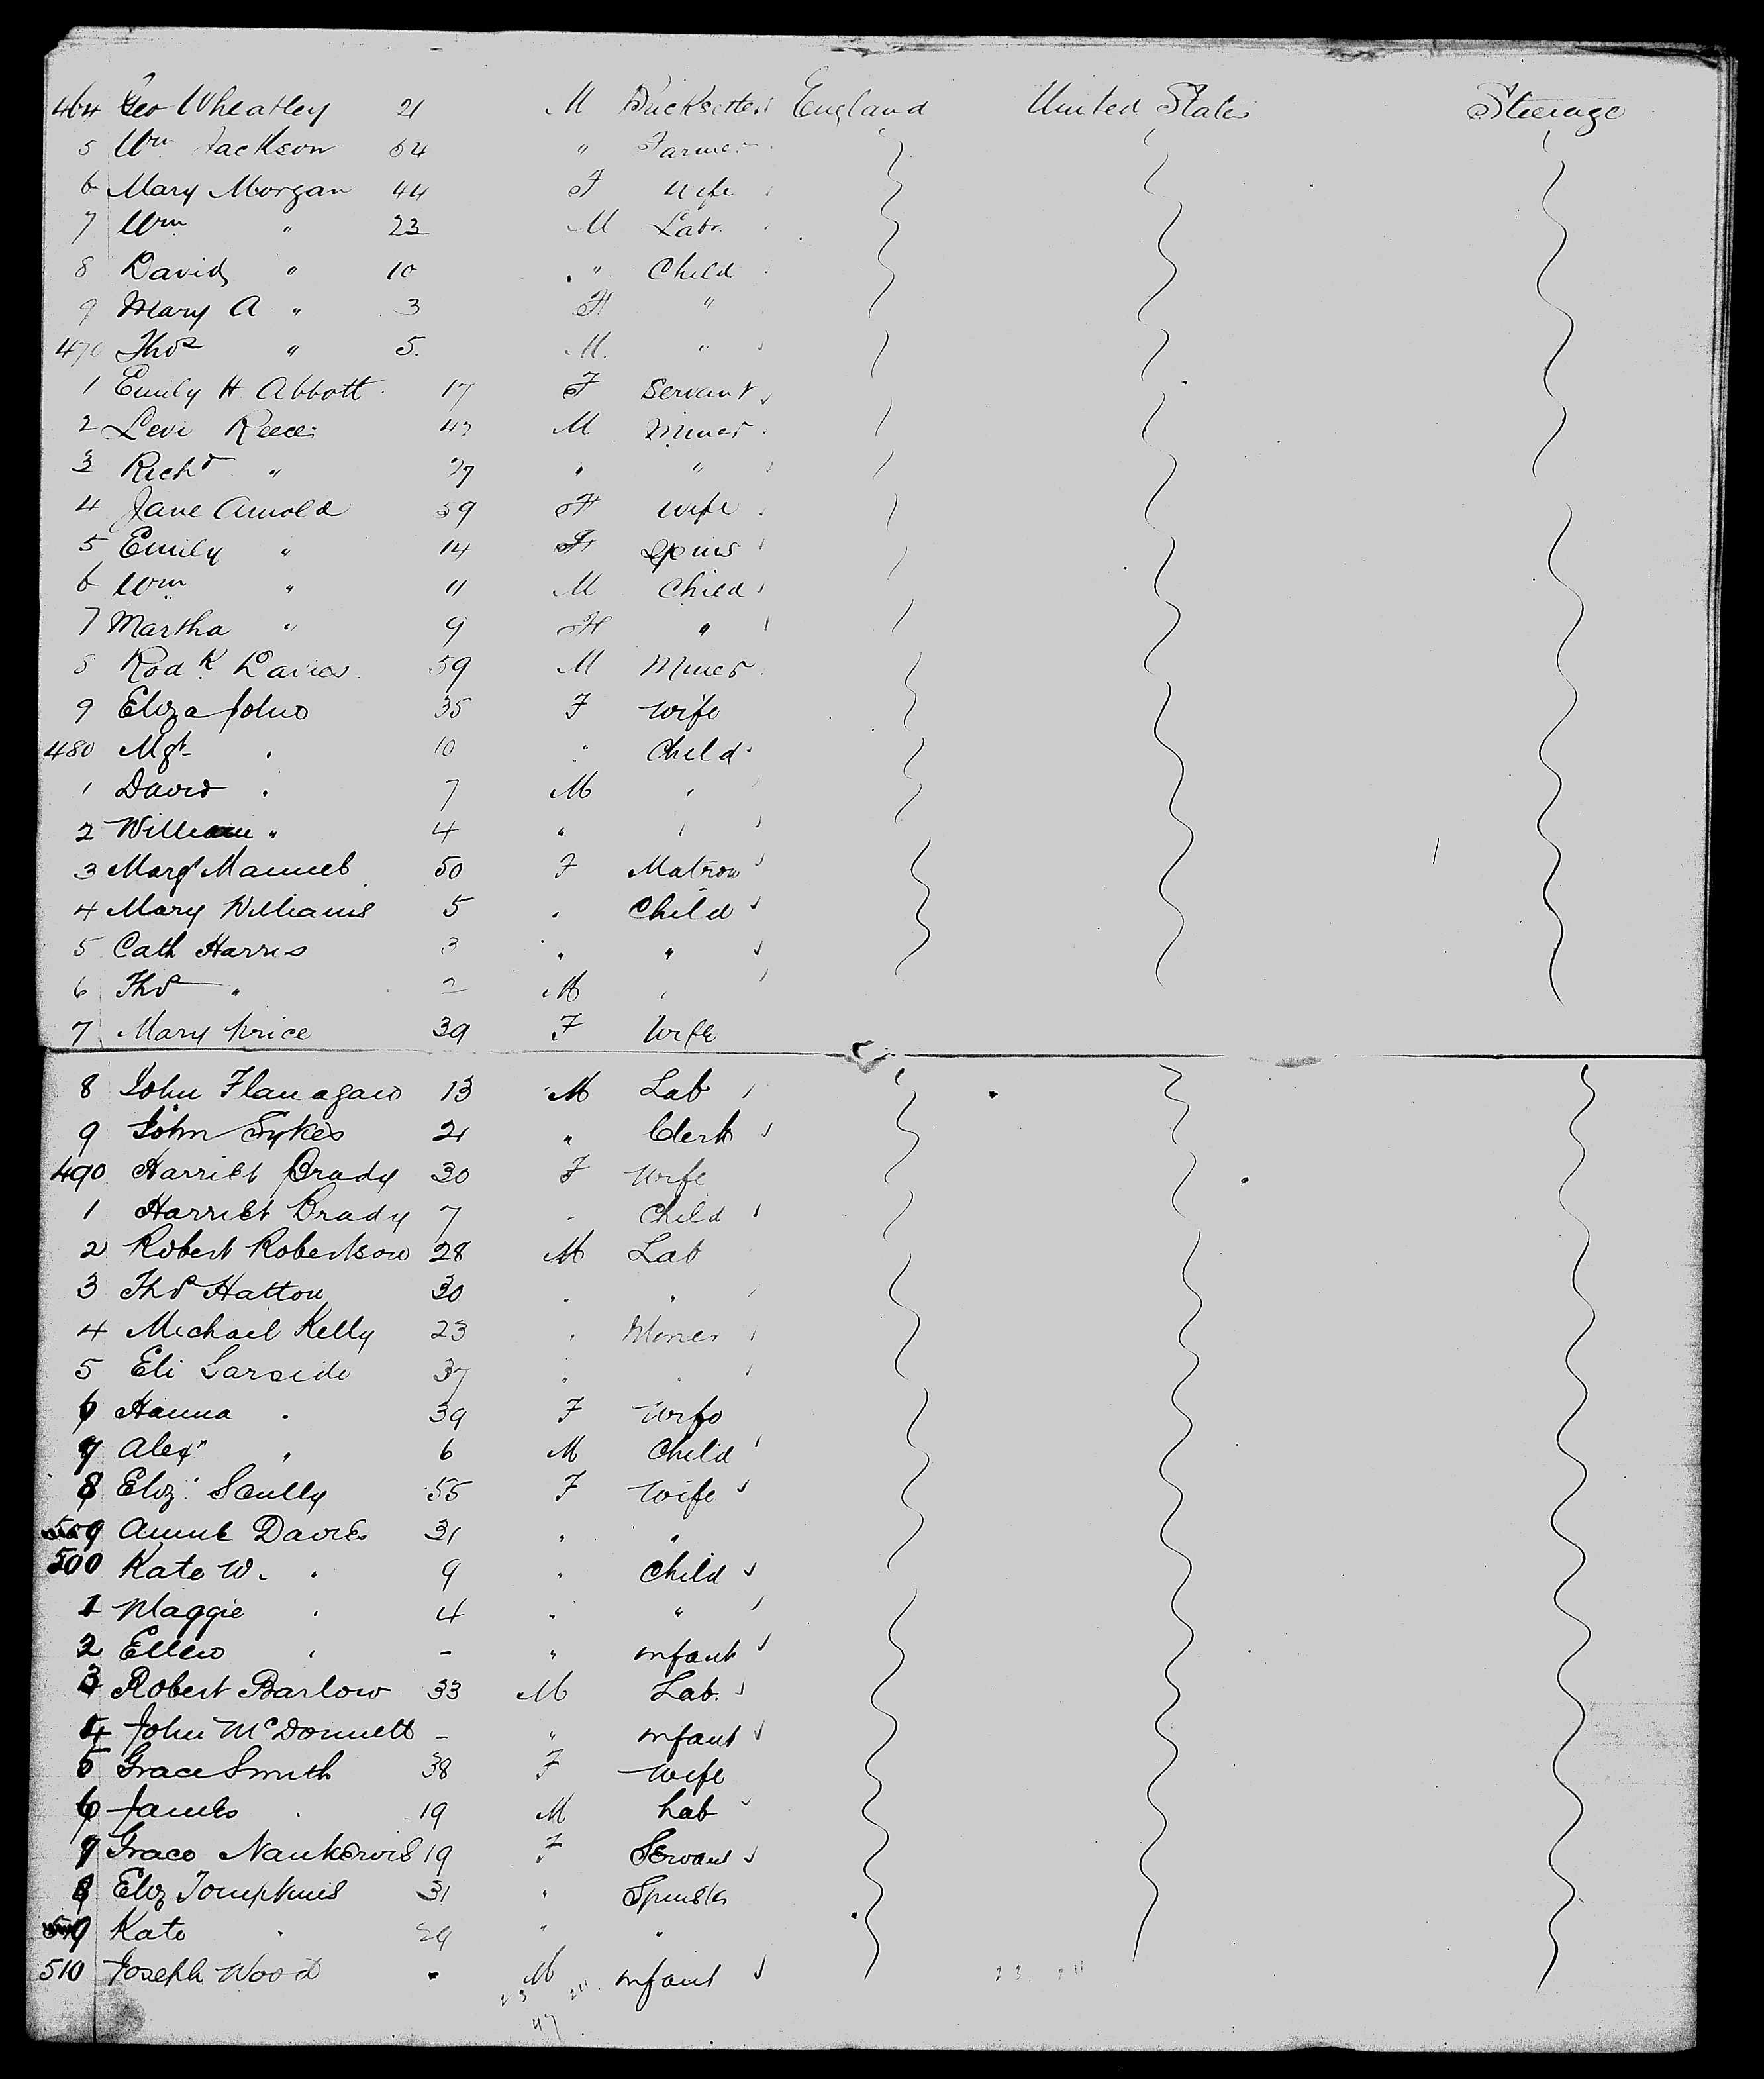 464 Geo Wheatley 21 M Bricksetter England United States Steerage
5 Wm Jackson 54 " Farmer
6 Mary Morgan 44 F Wife
7 Wm " 23 M Labr
8 David " 10 " Child
9 Mary A " 3 F "
470 Thos " 5. M. "
1 Emily H Abbott 17 F Servant
2 Levi Reece 43 M Miner
3 Richd " 27 " "
4 Jane Arnold 39 F Wife
5 Emily " 14 F Spins
6 Wm " 11 M Child
7 Martha " 9 F "
8 Rodk Davies 59 M Miner
9 Eliza Johns 35 F Wife
480 Mgt " 10 " Child
1 David " 7 M "
2 William " 4 " "
3 Margt Manuel 50 F Matron
4 Mary Williams 5 " Child
5 Cath Harris 3 " "
6 Thos " 2 M "
7 Mary Price 39 F Wife
8 John Flanagan 13 M Lab
9 John Sykes 21 " Clerk
490 Harriet Brady 30 F Wife
1 Harriet Brady 7 " Child
2 Robert Robertson 28 M Lab
3 Thos Hatton 30 " "
4 Michael Kelly 23 " Miner
5 Eli Garside 37 " "
6 Hanna " 39 F Wife
7 Alexr " 6 M Child
8 Eliz. Scully 55 F Wife
9 Annie Davies 31 " "
500 Kate W. " 9 " Child
1 Maggie " 4 " "
2 Ellen " - " infant
3 Robert Barlow 33 M Lab.
4 John McDonnell - " infant
5 Grace Smith 38 F Wife
6 James " 19 M Lab
7 Grace Nankervis 19 F Servant
8 Eliz Tompkins 31 " Spinster
9 Kate " 29 " "
510 Joseph Wood " M infant